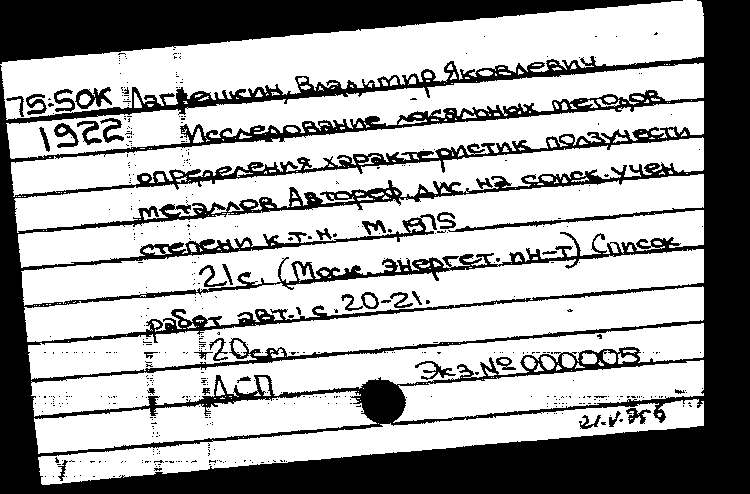 75-50К Лагвешкин, Владимир Яковлевич.
1922 Исследование локальных методов
определения характеристик ползучести
металлов Автореф. дис. на соиск. учен.
степени к.т.н. М., 1975.
21 с. (Моск. энергет. ин-т) Список
работ авт.: с. 20-21.
20 см.
ДСП Экз. № 000005.
21.V.75
У